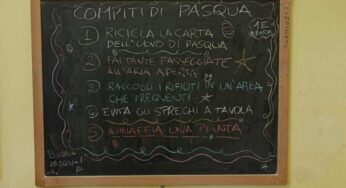 COMPITI DI PASQUA
1 RICICLA LA CARTA
DELL'UOVO DI PASQUA
2 FAI TANTE PASSEGGIATE
ALL'ARIA APERTA
3 RACCOGLI I RIFIUTI IN UN'AREA
CHE FREQUENTI
4 EVITA GLI SPRECHI A TAVOLA
5 ANNAFFIA UNA PIANTA
BUONA
PASQUA!